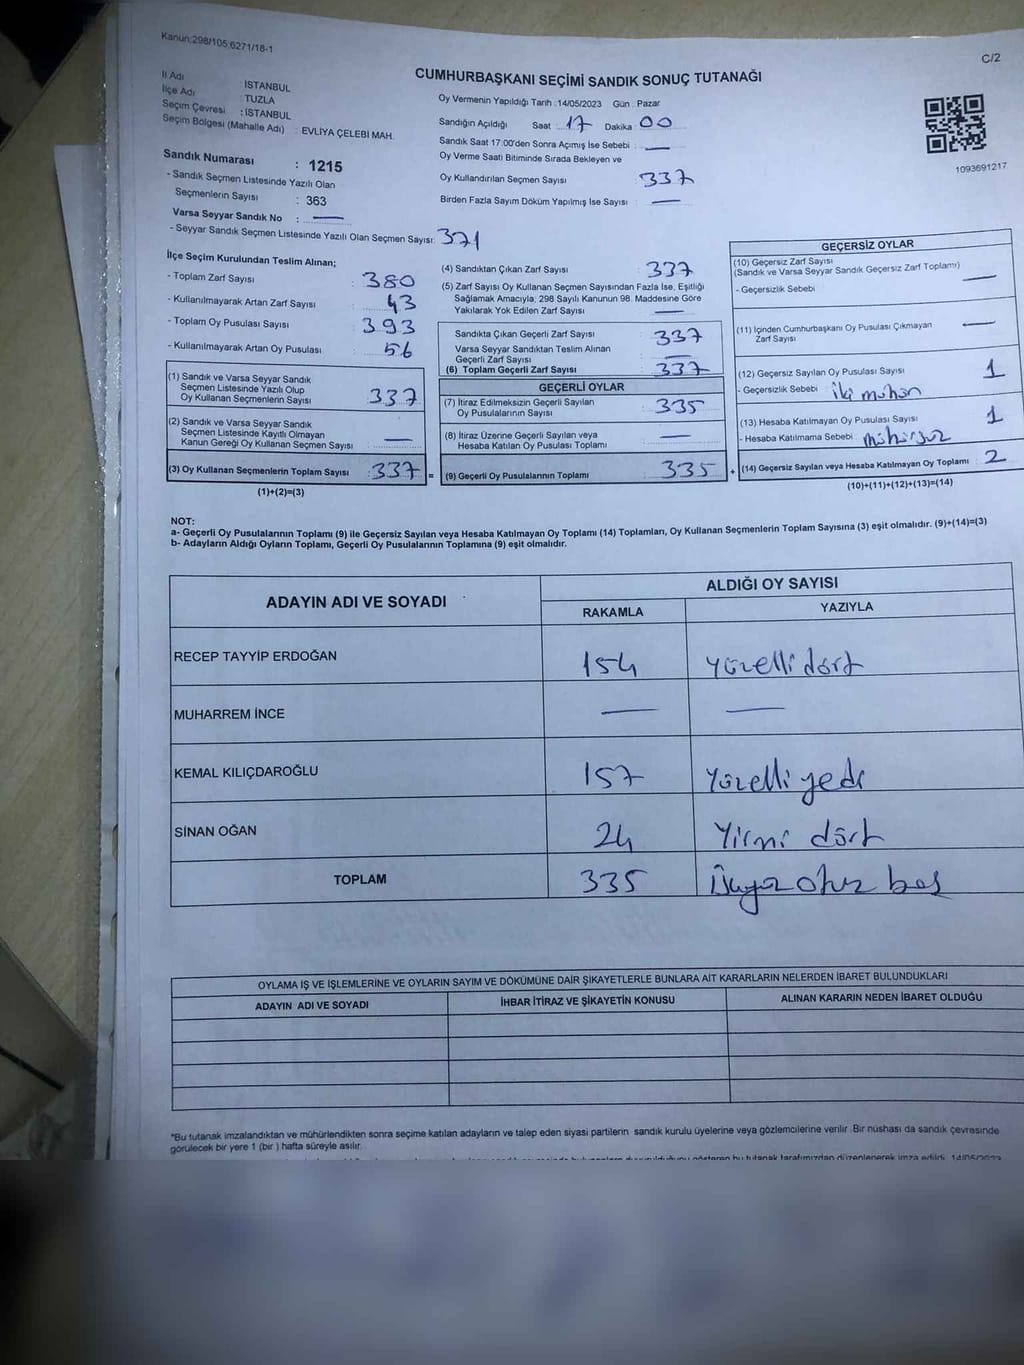 Kanun:298/105;6271/18-1
C/2
CUMHURBAŞKANI SEÇİMİ SANDIK SONUÇ TUTANAĞI
İl Adı : İSTANBUL
İlçe Adı : TUZLA
Seçim Çevresi : İSTANBUL
Seçim Bölgesi (Mahalle Adı) : EVLİYA ÇELEBİ MAH.
Sandık Numarası : 1215
- Sandık Seçmen Listesinde Yazılı Olan
Seçmenlerin Sayısı : 363
Varsa Seyyar Sandık No : —
- Seyyar Sandık Seçmen Listesinde Yazılı Olan Seçmen Sayısı: 371
Oy Vermenin Yapıldığı Tarih :14/05/2023 Gün : Pazar
Sandığın Açıldığı Saat : 17 Dakika 00
Sandık Saat 17:00'den Sonra Açımış İse Sebebi : —
Oy Verme Saati Bitiminde Sırada Bekleyen ve
Oy Kullandırılan Seçmen Sayısı : 337
Birden Fazla Sayım Döküm Yapılmış İse Sayısı : —
1093691217
İlçe Seçim Kurulundan Teslim Alınan;
- Toplam Zarf Sayısı : 380
- Kullanılmayarak Artan Zarf Sayısı : 43
- Toplam Oy Pusulası Sayısı : 393
- Kullanılmayarak Artan Oy Pusulası : 56
(1) Sandık ve Varsa Seyyar Sandık
Seçmen Listesinde Yazılı Olup
Oy Kullanan Seçmenlerin Sayısı : 337
(2) Sandık ve Varsa Seyyar Sandık
Seçmen Listesinde Kayıtlı Olmayan
Kanun Gereği Oy Kullanan Seçmen Sayısı : —
(3) Oy Kullanan Seçmenlerin Toplam Sayısı : 337 =
(1)+(2)=(3)
(4) Sandıktan Çıkan Zarf Sayısı : 337
(5) Zarf Sayısı Oy Kullanan Seçmen Sayısından Fazla İse, Eşitliği
Sağlamak Amacıyla, 298 Sayılı Kanunun 98. Maddesine Göre
Yakılarak Yok Edilen Zarf Sayısı : —
Sandıkta Çıkan Geçerli Zarf Sayısı : 337
Varsa Seyyar Sandıktan Teslim Alınan
Geçerli Zarf Sayısı : —
(6) Toplam Geçerli Zarf Sayısı : 337
GEÇERLİ OYLAR
(7) İtiraz Edilmeksizin Geçerli Sayılan
Oy Pusulalarının Sayısı : 335
(8) İtiraz Üzerine Geçerli Sayılan veya
Hesaba Katılan Oy Pusulası Toplamı : —
(9) Geçerli Oy Pusulalarının Toplamı : 335 +
GEÇERSİZ OYLAR
(10) Geçersiz Zarf Sayısı
(Sandık ve Varsa Seyyar Sandık Geçersiz Zarf Toplamı) : —
- Geçersizlik Sebebi
(11) İçinden Cumhurbaşkanı Oy Pusulası Çıkmayan
Zarf Sayısı : —
(12) Geçersiz Sayılan Oy Pusulası Sayısı : 1
- Geçersizlik Sebebi : İki mühür
(13) Hesaba Katılmayan Oy Pusulası Sayısı : 1
- Hesaba Katılmama Sebebi : mühürsüz
(14) Geçersiz Sayılan veya Hesaba Katılmayan Oy Toplamı : 2
(10)+(11)+(12)+(13)=(14)
NOT:
a- Geçerli Oy Pusulalarının Toplamı (9) ile Geçersiz Sayılan veya Hesaba Katılmayan Oy Toplamı (14) Toplamları, Oy Kullanan Seçmenlerin Toplam Sayısına (3) eşit olmalıdır. (9)+(14)=(3)
b- Adayların Aldığı Oyların Toplamı, Geçerli Oy Pusulalarının Toplamına (9) eşit olmalıdır.
ADAYIN ADI VE SOYADI
ALDIĞI OY SAYISI
RAKAMLA YAZIYLA
RECEP TAYYİP ERDOĞAN 154 yüzelli dört
MUHARREM İNCE — —
KEMAL KILIÇDAROĞLU 157 yüzelli yedi
SİNAN OĞAN 24 Yirmi dört
TOPLAM 335 Üçyüz otuz beş
OYLAMA İŞ VE İŞLEMLERİNE VE OYLARIN SAYIM VE DÖKÜMÜNE DAİR ŞİKAYETLERLE BUNLARA AİT KARARLARIN NELERDEN İBARET BULUNDUKLARI
ADAYIN ADI VE SOYADI İHBAR İTİRAZ VE ŞİKAYETİN KONUSU ALINAN KARARIN NEDEN İBARET OLDUĞU
*Bu tutanak imzalandıktan ve mühürlendikten sonra seçime katılan adayların ve talep eden siyasi partilerin sandık kurulu üyelerine veya gözlemcilerine verilir. Bir nüshası da sandık çevresinde
görülecek bir yere 1 (bir ) hafta süreyle asılır.
bu tutanak tarafımızdan düzenlenerek imza edildi. 14/05/2023